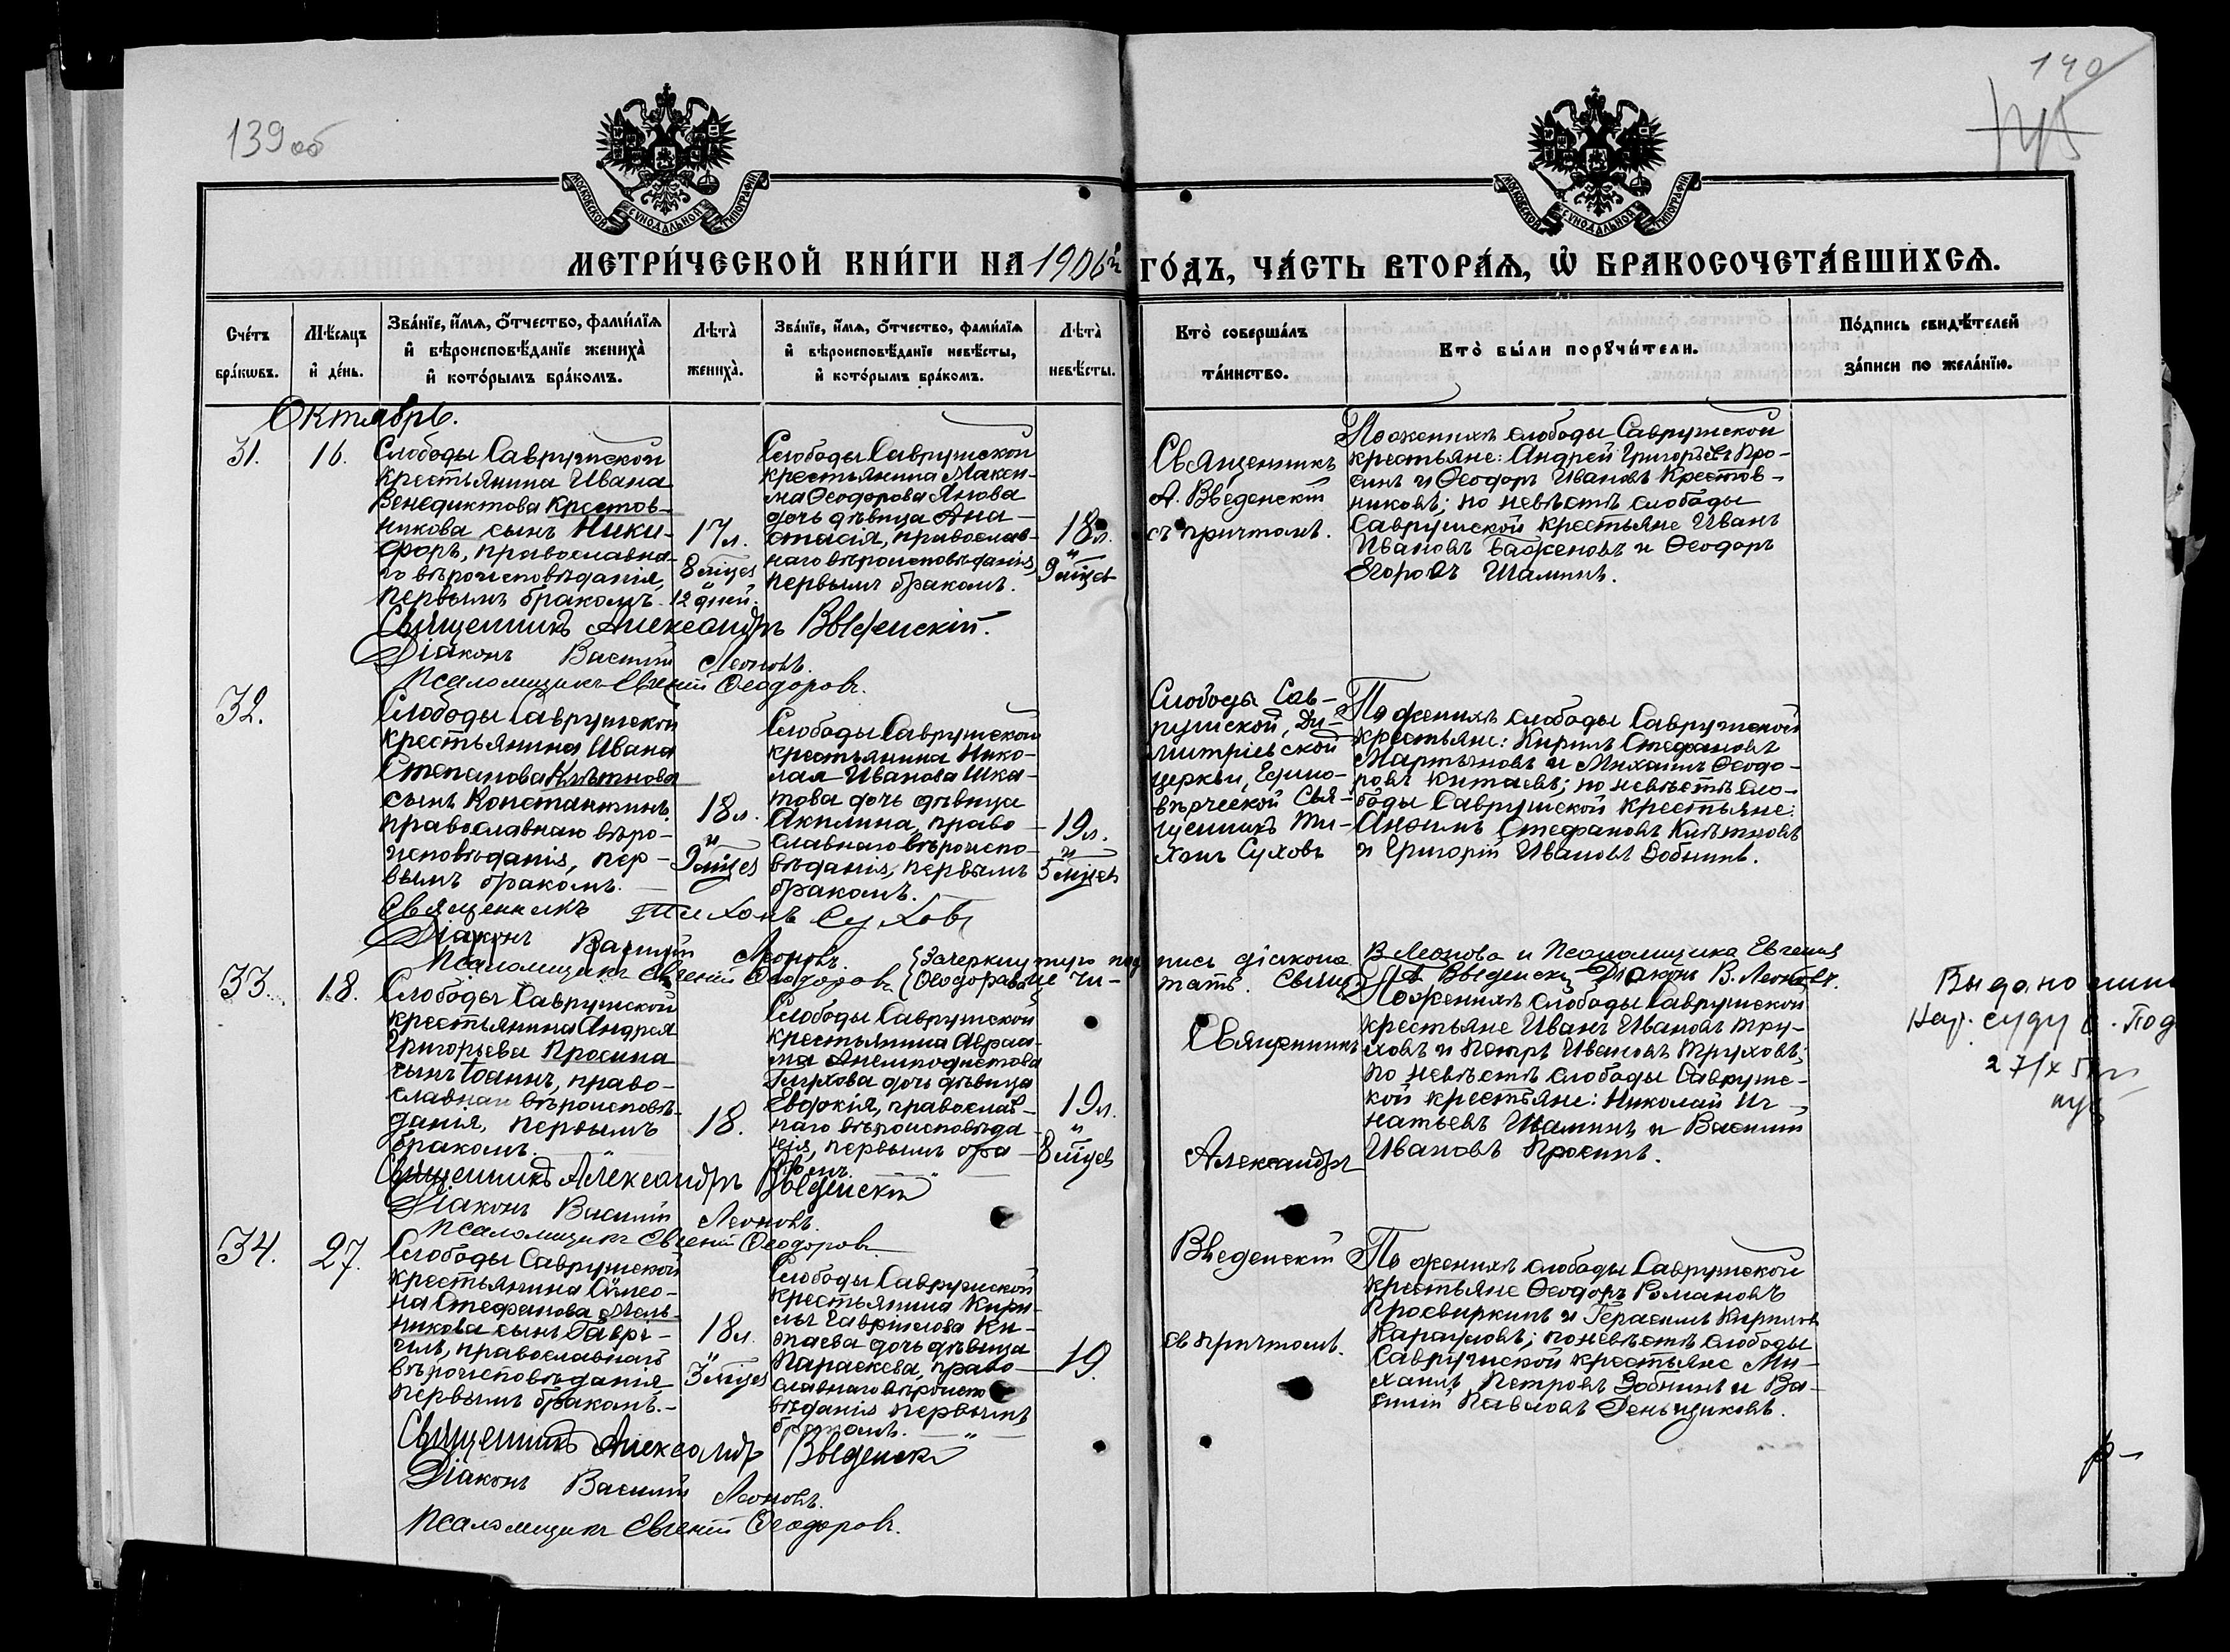 139 об
140
МОСКОВСКОЙ СѴНОДАЛЬНОЙ ТИПОГРАФІИ
МОСКОВСКОЙ СѴНОДАЛЬНОЙ ТИПОГРАФІИ
МЕТРИ́ЧЕСКОЙ КНИ́ГИ НА 1906й ГО́ДЪ, ЧА́СТЬ ВТОРА́Я, Ѡ БРАКОСОЧЕТА́ВШИХСЯ.
Сче́тъ бра́кѡвъ.
Мѣ́сяцъ и҆ де́нь.
Зва́нїе, и҆́мя, ѻ҆́тчество, фами́лїя
и҆ вѣроисповѣ́данїе жениха̀
и҆ кото́рымъ бра́комъ.
Лѣта̀ жениха̀.
Зва́нїе, и҆́мя, ѻ҆́тчество, фами́лїя
и҆ вѣроисповѣ́данїе невѣ́сты,
и҆ кото́рымъ бра́комъ.
Лѣта̀ невѣ́сты.
Кто̀ соверша́лъ таи́нство.
Кто̀ бы́ли порꙋчи́тели.
По́дпись свидѣ́телей за́писи по жела́нїю.
Октябрь.
31.
16.
Слободы Саврушской
крестьянина Ивана
Венедиктова Крестов-
никова сынъ Ники-
форъ, православна-
го вѣроисповѣданія,
первымъ бракомъ.
17 л.
8 мѣцев
12 дней.
Слободы Саврушской
крестьянина Макси-
ма Ѳеодорова Янова
дочь дѣвица Ана-
стасія, православ-
наго вѣроисповѣданія,
первымъ бракомъ.
18 л.
и
9 мѣцев
Священникъ
А. Введенскій
съ причтомъ.
По женихѣ слободы Саврушской
крестьяне: Андрей Григорьевъ Про-
синъ и Ѳеодоръ Ивановъ Крестов-
никовъ; по невѣстѣ слободы
Саврушской крестьяне Иванъ
Ивановъ Баженовъ и Ѳеодоръ
Егоровъ Шаминъ.
Священникъ Александръ Введенскій.
Діаконъ Василій Леоновъ.
Псаломщикъ Евгеній Ѳеодоровъ.
32.
Слободы Саврушской
крестьянина Ивана
Степанова Клѣтнова
сынъ Константинъ,
православнаго вѣро-
исповѣданія, пер-
вымъ бракомъ.
18 л.
и
9 мѣцев
Слободы Саврушской
крестьянина Нико-
лая Ивановa Шка-
това дочь дѣвица
Акилина, право-
славнаго вѣроиспо-
вѣданія, первымъ
бракомъ.
19 л.
и
5 мѣцев
Слободы Сав-
рушской, Ди-
митріевской
церкви, Едино-
вѣрческой Свя-
щенникъ Ти-
хонъ Суховъ
По женихѣ слободы Саврушской
крестьяне: Кирилъ Стефановъ
Мартыновъ и Михаилъ Ѳеодо-
ровъ Китаевъ; по невѣстѣ сло-
боды Саврушской крестьяне:
Анфимъ Стефановъ Клѣтновъ
и Григорій Ивановъ Зобнинъ.
Священникъ Тихонъ Суховъ
Діаконъ Василій Леоновъ.
Псаломщикъ Евгеній Ѳеодоровъ
Зачеркнутую подпись діакона В. Леонова и Псаломщика Евгенія
Ѳеодорова не читать. Свящ. А. Введенскій Діаконъ В. Леоновъ.
33.
18.
Слободы Саврушской
крестьянина Андрея
Григорьева Просина
сынъ Іоаннъ, право-
славнаго вѣроисповѣ-
данія, первымъ
бракомъ.
18.
Слободы Саврушской
крестьянина Авраа-
ма Анемподистова
Глухова дочь дѣвица
Евдокія, православ-
наго вѣроисповѣда-
нія, первымъ бра-
комъ.
19 л.
и
8 мѣцев
Священникъ
Александръ
По женихѣ слободы Саврушской
крестьяне Иванъ Ивановъ Тру-
ховъ и Петръ Ивановъ Труховъ;
по невѣстѣ слободы Савруш-
кой крестьяне: Николай Иг-
натьевъ Шаминъ и Василій
Ивановъ Просинъ.
Выдано
Нар. суду
Священникъ Александръ Введенскій
Діаконъ Василій Леоновъ.
Псаломщикъ Евгеній Ѳеодоровъ
34.
27.
Слободы Саврушской
крестьянина Симео-
на Стефанова Мель-
никова сынъ Гаврі-
илъ, православнаго
вѣроисповѣданія
первымъ бракомъ.
18 л.
и
3 мѣцев
Слободы Саврушской
крестьянина Кири-
лы Гаврилова Ки-
таева дочь дѣвица
Параскева, право-
славнаго вѣроиспо-
вѣданія первымъ
бракомъ.
19.
Введенскій
съ причтомъ.
По женихѣ слободы Саврушской
крестьяне Ѳеодоръ Романовъ
Просвиркинъ и Герасимъ Кириловъ
Карауловъ; по невѣстѣ слободы
Саврушской крестьяне Ми-
хаилъ Петровъ Зобнинъ и Ва-
силій Павловъ Деньщиковъ.
Священникъ Александръ Введенскій
Діаконъ Василій Леоновъ.
Псаломщикъ Евгеній Ѳеодоровъ.